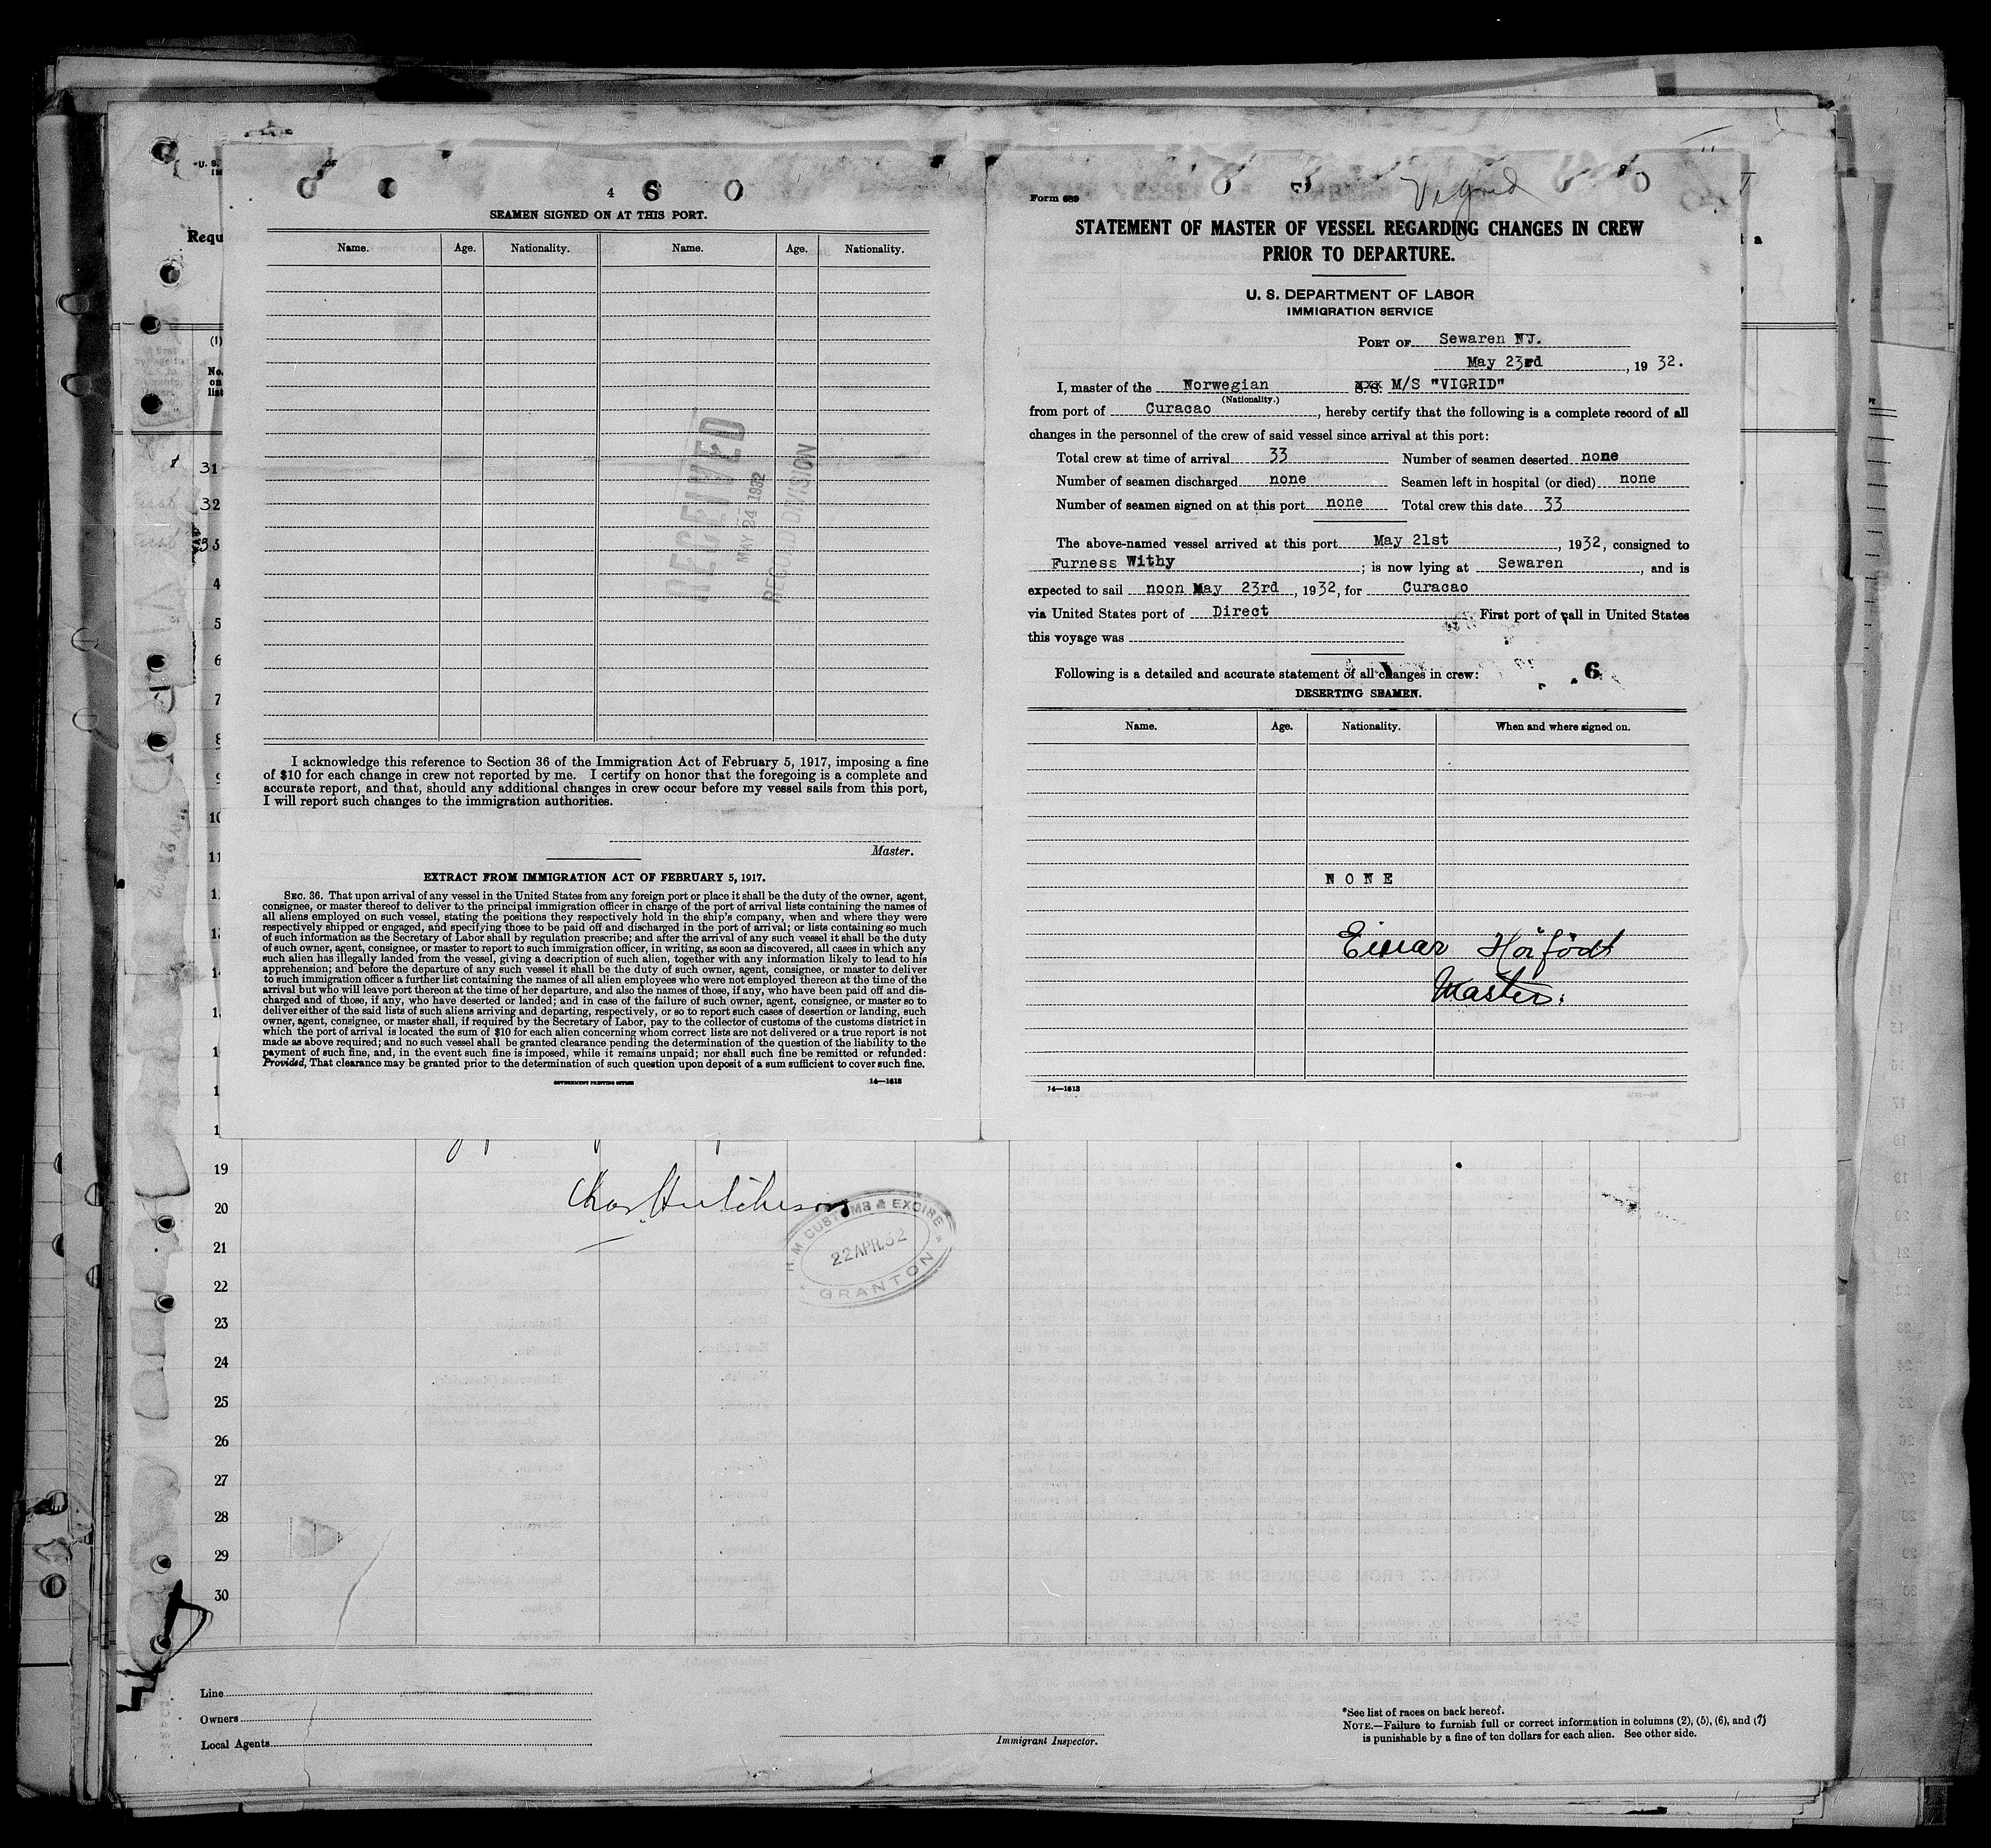 4
SEAMEN SIGNED ON AT THIS PORT.
Name. Age. Nationality. Name. Age. Nationality.
RECEIVED
MAY 24 1932
RECORD DIVISION
I acknowledge this reference to Section 36 of the Immigration Act of February 5, 1917, imposing a fine
of $10 for each change in crew not reported by me. I certify on honor that the foregoing is a complete and
accurate report, and that, should any additional changes in crew occur before my vessel sails from this port,
I will report such changes to the immigration authorities.
Master.
EXTRACT FROM IMMIGRATION ACT OF FEBRUARY 5, 1917.
SEC. 36. That upon arrival of any vessel in the United States from any foreign port or place it shall be the duty of the owner, agent,
consignee, or master thereof to deliver to the principal immigration officer in charge of the port of arrival lists containing the names of
all aliens employed on such vessel, stating the positions they respectively hold in the ship's company, when and where they were
respectively shipped or engaged, and specifying those to be paid off and discharged in the port of arrival; or lists containing so much
of such information as the Secretary of Labor shall by regulation prescribe; and after the arrival of any such vessel it shall be the duty
of such owner, agent, consignee, or master to report to such immigration officer, in writing, as soon as discovered, all cases in which any
such alien has illegally landed from the vessel, giving a description of such alien, together with any information likely to lead to his
apprehension; and before the departure of any such vessel it shall be the duty of such owner, agent, consignee, or master to deliver
to such immigration officer a further list containing the names of all alien employees who were not employed thereon at the time of the
arrival but who will leave port thereon at the time of her departure, and also the names of those, if any, who have been paid off and dis-
charged and of those, if any, who have deserted or landed; and in case of the failure of such owner, agent, consignee, or master so to
deliver either of the said lists of such aliens arriving and departing, respectively, or so to report such cases of desertion or landing, such
owner, agent, consignee, or master shall, if required by the Secretary of Labor, pay to the collector of customs of the customs district in
which the port of arrival is located the sum of $10 for each alien concerning whom correct lists are not delivered or a true report is not
made as above required; and no such vessel shall be granted clearance pending the determination of the question of the liability to the
payment of such fine, and, in the event such fine is imposed, while it remains unpaid; nor shall such fine be remitted or refunded:
Provided, That clearance may be granted prior to the determination of such question upon deposit of a sum sufficient to cover such fine.
GOVERNMENT PRINTING OFFICE 14—1613
Form 689
Vigrid
STATEMENT OF MASTER OF VESSEL REGARDING CHANGES IN CREW
PRIOR TO DEPARTURE.
U. S. DEPARTMENT OF LABOR
IMMIGRATION SERVICE
PORT OF Sewaren NJ.
May 23rd, 1932.
I, master of the Norwegian S.S. M/S "VIGRID"
(Nationality.)
from port of Curacao, hereby certify that the following is a complete record of all
changes in the personnel of the crew of said vessel since arrival at this port:
Total crew at time of arrival 33 Number of seamen deserted none
Number of seamen discharged none Seamen left in hospital (or died) none
Number of seamen signed on at this port none Total crew this date 33
The above-named vessel arrived at this port May 21st, 1932, consigned to
Furness Withy; is now lying at Sewaren, and is
expected to sail noon May 23rd, 1932, for Curacao
via United States port of Direct First port of call in United States
this voyage was
Following is a detailed and accurate statement of all changes in crew: 6
DESERTING SEAMEN.
Name. Age. Nationality. When and where signed on.
NONE
Einar Höifödt
Master.
14—1613
Requ
(1)
No.
on
list
31
32
33
4
5
6
7
8
9
10
11
19
Chas Hutcheson
20
H M CUSTOMS & EXCISE
22 APR 32
GRANTON
21
22
23
24
25
26
27
28
29
30
Line
Owners
Local Agents
Immigrant Inspector.
*See list of races on back hereof.
NOTE.—Failure to furnish full or correct information in columns (2), (5), (6), and (7)
is punishable by a fine of ten dollars for each alien. See other side.